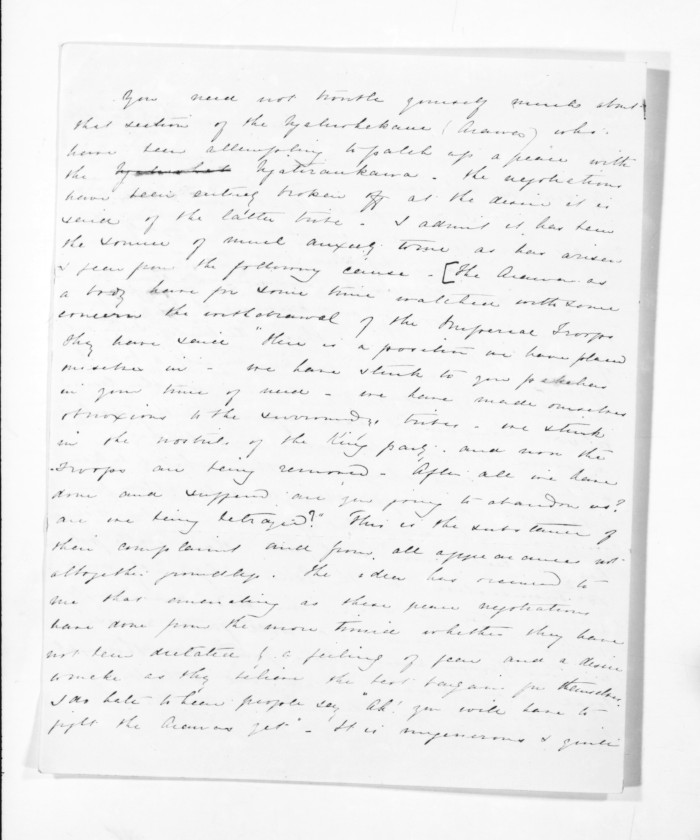 You need not trouble yourself much about
that section of the Ngatiwhakaue (Arawas) who
have been attempting to patch up a peace with
the Ngatiraukawa - the negotiations
have been entirely broken off at the desire it is
said of the latter tribe - I admit it has been
the source of much anxiety to me as has arisen
I fear from the following cause - [The Arawa as
a body have for some time watched with some
concern the withdrawal of the Imperial Troops
They have said "Here is a position we have placed
ourselves in - we have stuck to you pakehas
in your time of need - we have made ourselves
obnoxious to the surrounding tribes - we stink
in the nostrils of the King party - and now the
Troops are being removed - After all we have
done and suffered are you going to abandon us?
are we being betrayed?" This is the substance of
their complaint and from all appearances not
altogether groundless. The idea has occurred to
me that emanating as these peace negotiations
have done from the more timid whether they have
not been dictated by a feeling of fear and a desire
to make as they believe the best bargain for themselves.
I do hate to hear people say "Ah! you will have to
fight the Arawas yet" - It is ungenerous & quite